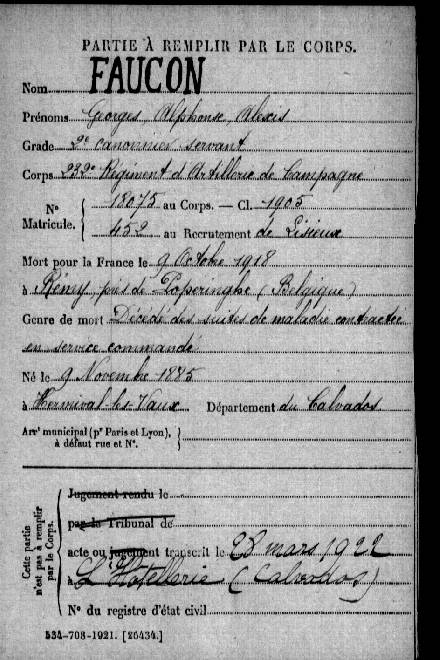 PARTIE À REMPLIR PAR LE CORPS.
Nom FAUCON
Prénoms Georges Alphonse Alexis
Grade 2e canonnier servant
Corps 232e Régiment d'Artillerie de Campagne
N° Matricule. 18075 au Corps. — Cl. 1905
452 au Recrutement de Lisieux
Mort pour la France le 9 Octobre 1918
à Rémy, près de Poperinghe (Belgique)
Genre de mort Décédé des suites de maladie contractée
en service commandé
Né le 9 Novembre 1885
à Hermival-les-Vaux Département du Calvados
Arrt municipal (pr Paris et Lyon), à défaut rue et N°.
Cette partie n'est pas à remplir par le Corps.
Jugement rendu le
par le Tribunal de
acte ou jugement transcrit le 28 mars 1922
à L'Hotellerie (Calvados)
N° du registre d'état civil
534-708-1921. [26434.]